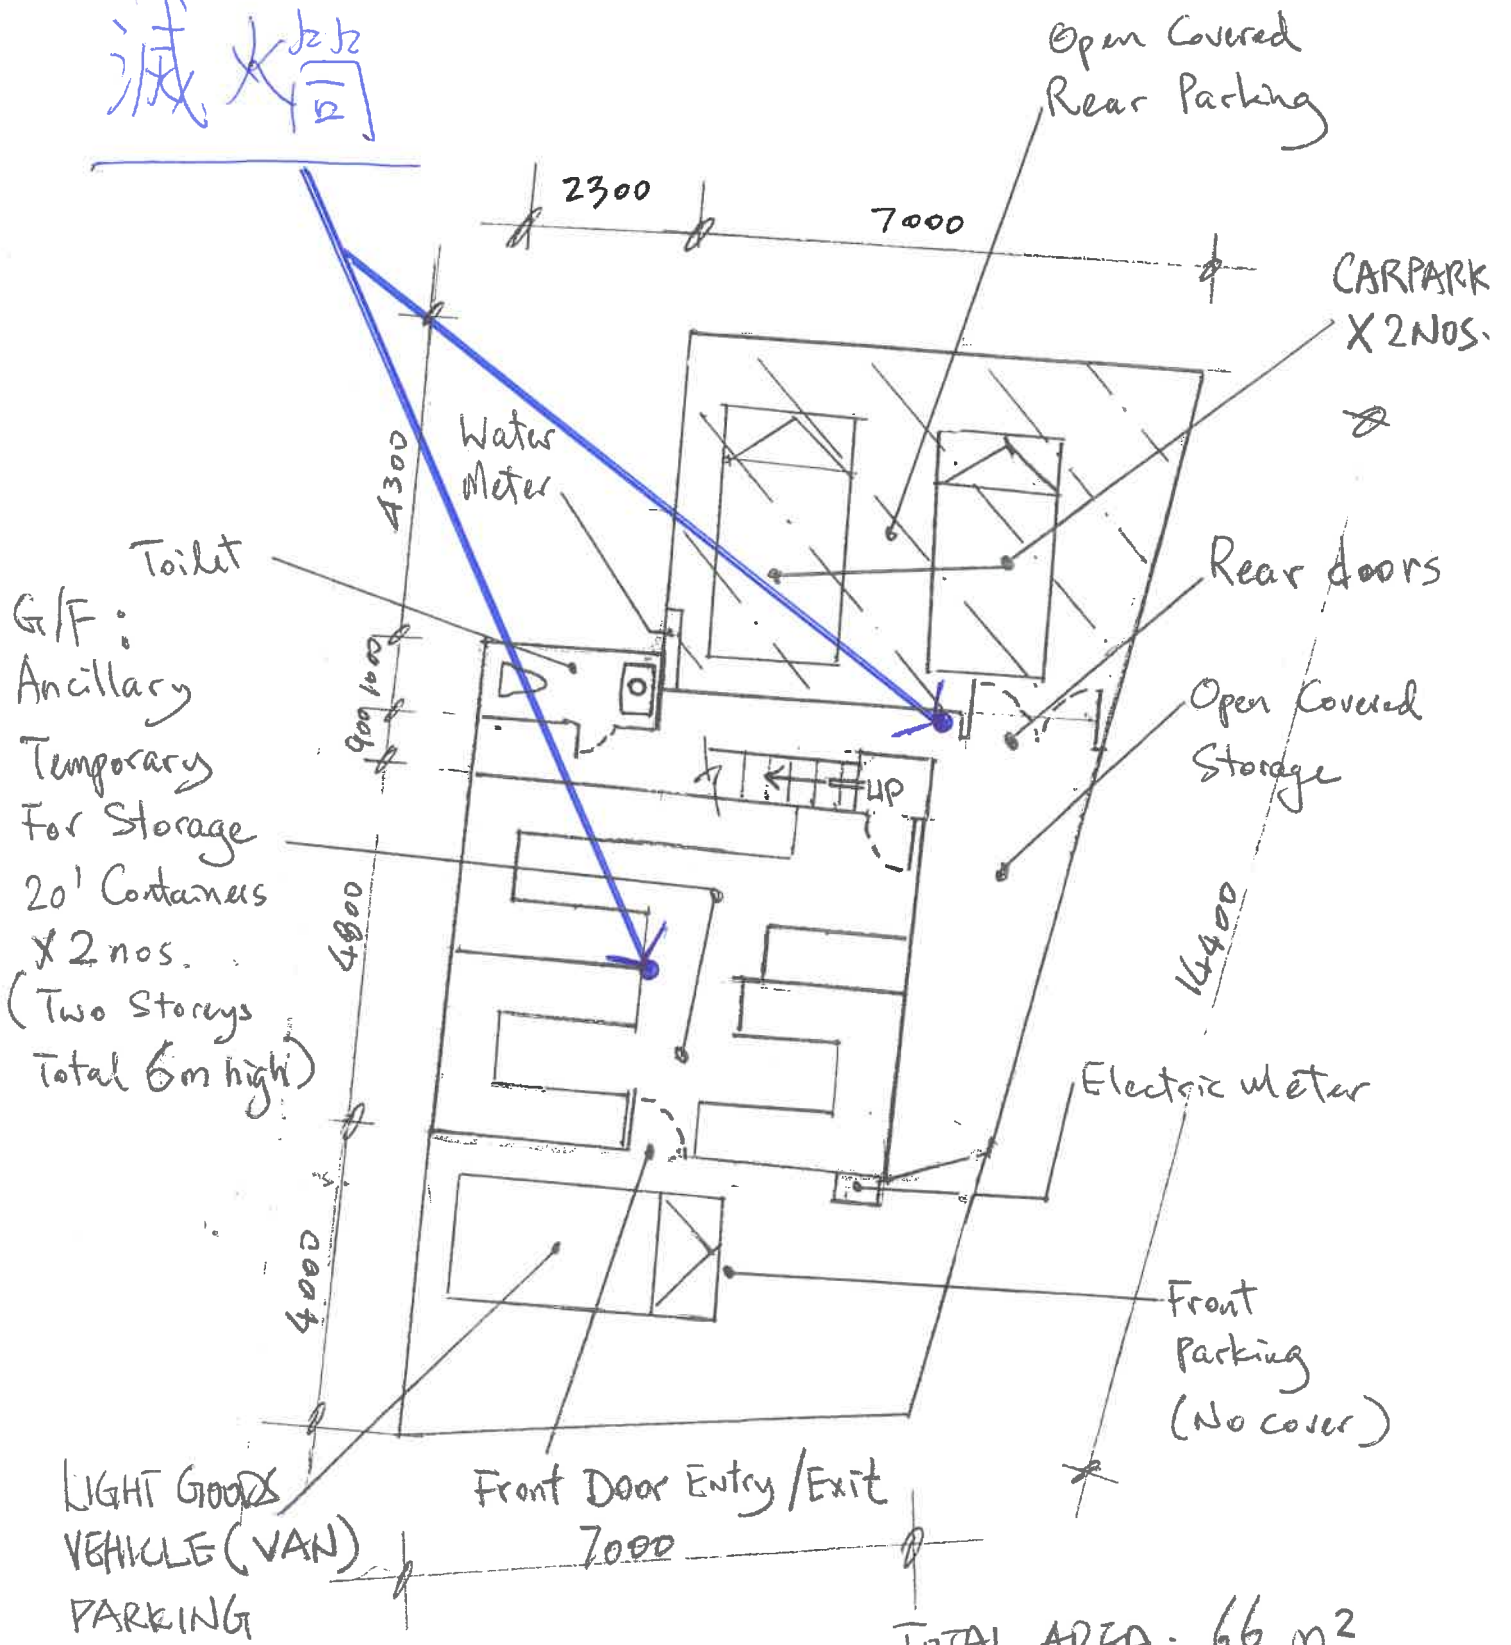 滅火筒
Open Covered
Rear Parking
2300
7000
CARPARK
X 2NOS.
Water
Meter
4300
Toilet
Rear doors
G/F:
Ancillary
Temporary
For Storage
20' Containers
X 2 nos.
(Two Storeys
Total 6m high)
1000
900
Open Covered
Storage
UP
4800
14400
Electric Meter
4000
Front
Parking
(No cover)
LIGHT GOODS
VEHICLE (VAN)
PARKING
Front Door Entry/Exit
7000
TOTAL AREA: 66 m²